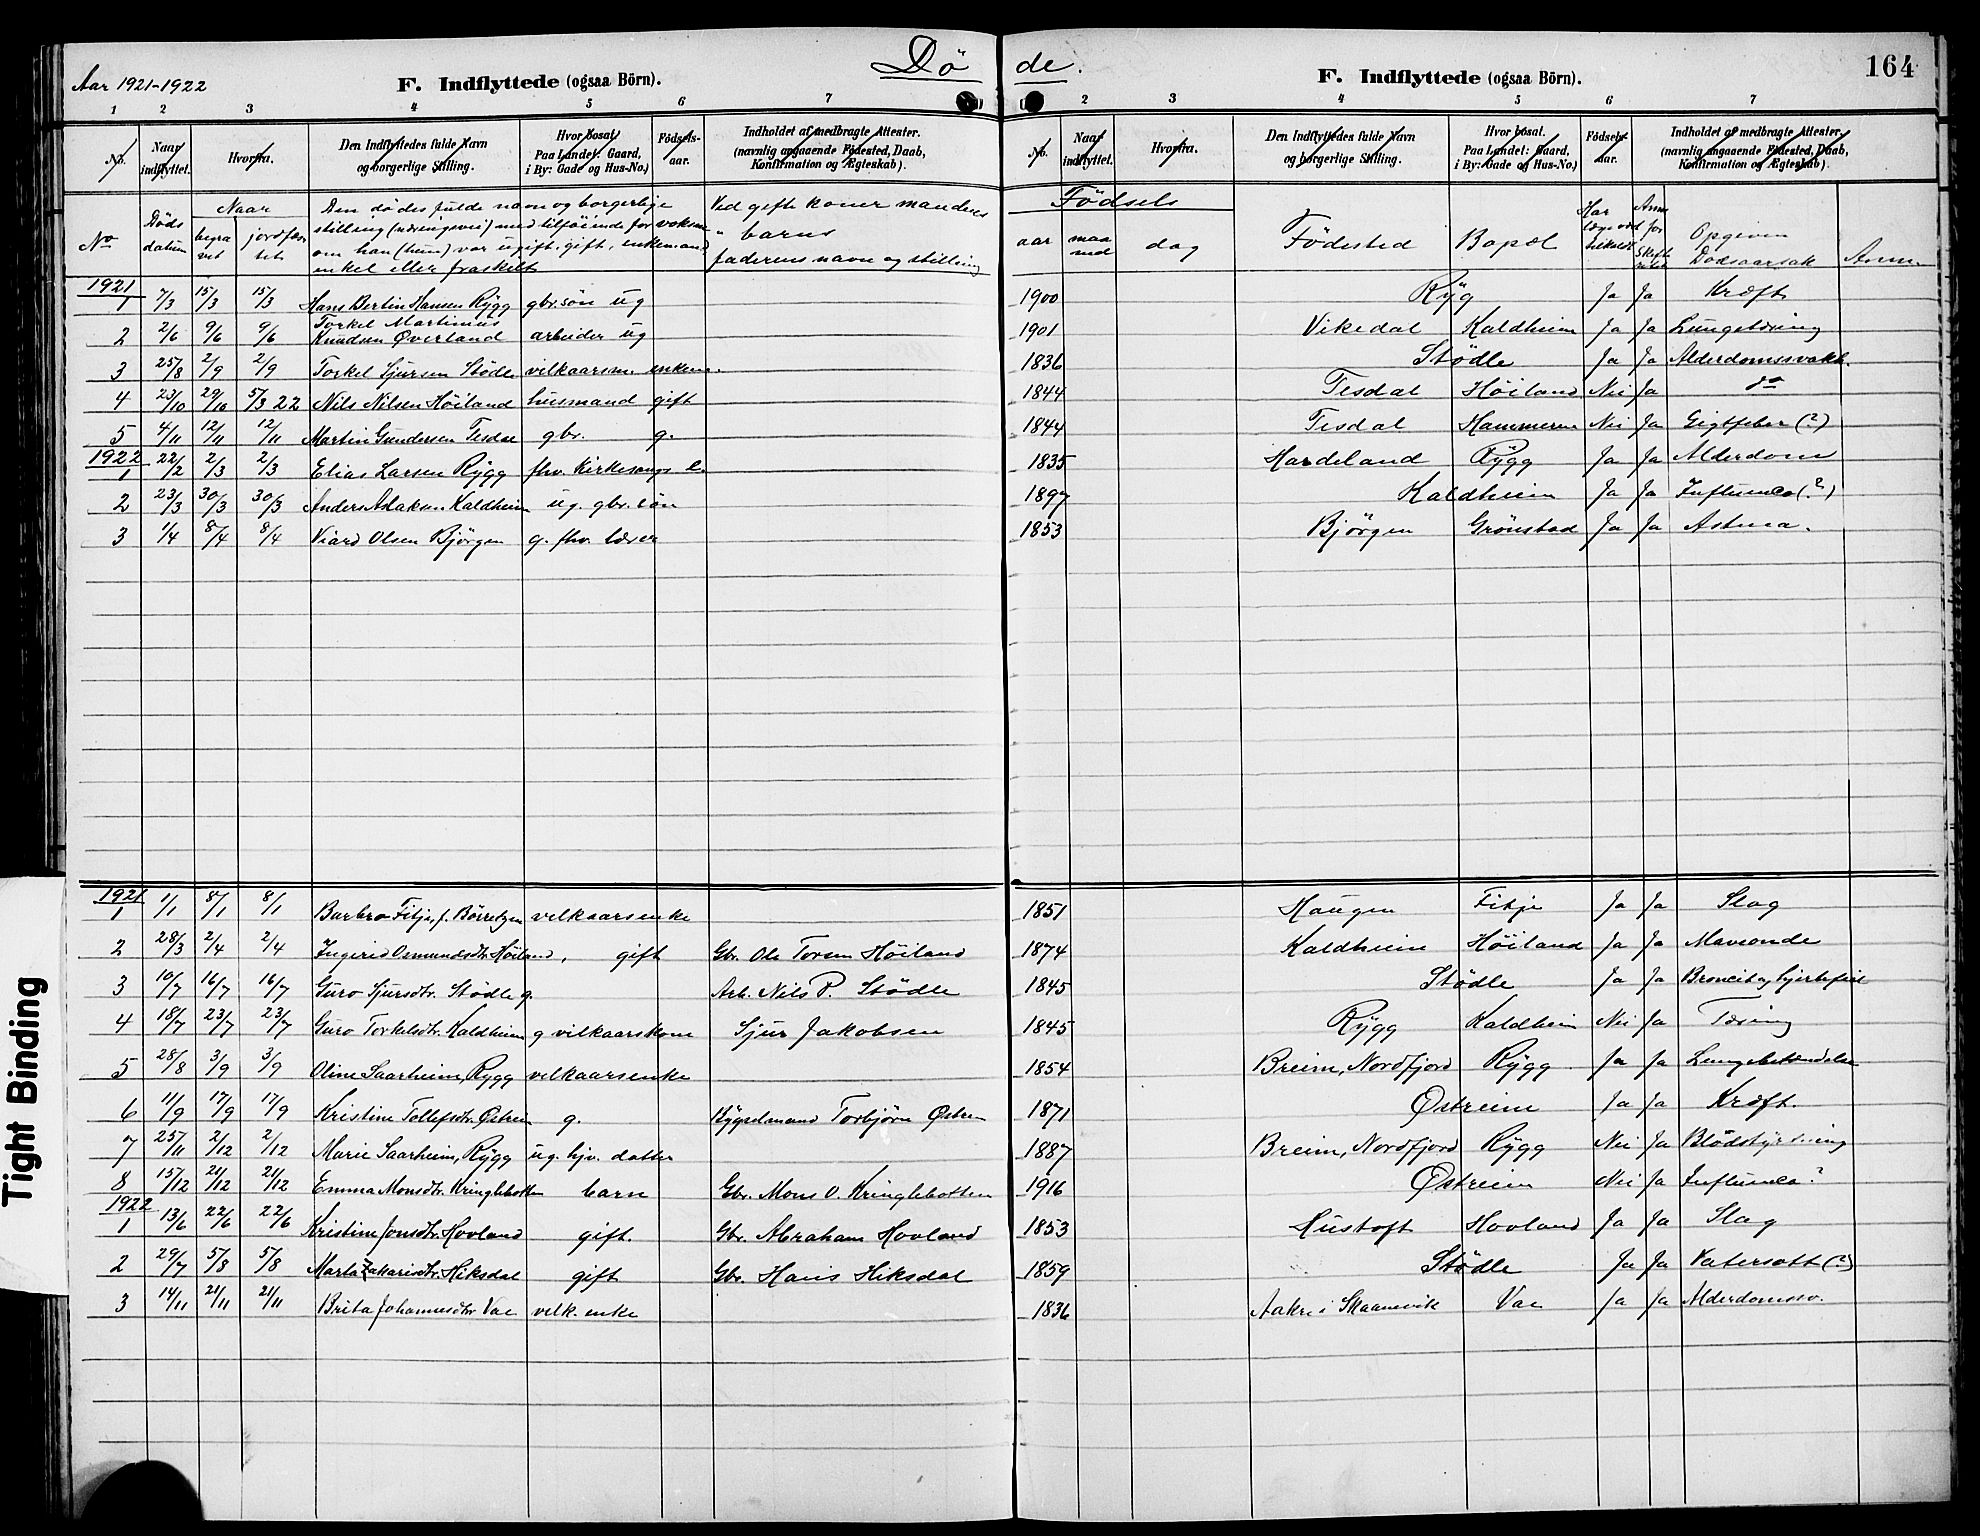 Aar 1921-1922
F. Indflyttede (ogsaa Börn).
Dö de.
F. Indflyttede (ogsaa Börn).
164
1 2 3 4 5 6 7 2 3 4 5 6 7
No. Naar indflyttet. Hvorfra. Den Indflyttedes fulde Navn og borgerlige Stilling. Hvor bosat. Paa Landet: Gaard, i By: Gade og Hus-No.) Födsels-aar. Indholdet af medbragte Attester. (navnlig angaaende Födested, Daab, Konfirmation og Ægteskab).
No. Naar indflyttet. Hvorfra. Den Indflyttedes fulde Navn og borgerlige Stilling. Hvor bosat. Paa Landet: Gaard, i By: Gade og Hus-No.) Födsels-aar. Indholdet af medbragte Attester. (navnlig angaaende Födested, Daab, Konfirmation og Ægteskab).
No Döds datum Naar begravet jordfæstet Den dödes fulde navn og borgerlige stilling (næringsvei) med tilföiende for voksne om han (hun) var ugift, gift, enkemand, enke eller fraskilt Ved gifte koner mandens " barns faderens navn og stilling
Födsels aar maaned dag Födested Bopæl Har læge været tilkaldt Anm for Skifteretten Opgiven Dödsaarsak Anm.
1921
1 7/3 15/3 15/3 Hans Bertin Hansen Rÿgg gbr. sön ug 1900 Rÿg Ja Ja Kræft
2 2/6 9/6 9/6 Torkel Martinius Knudsen Överland arbeider ug 1901 Vikedal Kaldheim Ja Ja Lungetæring
3 25/8 2/9 2/9 Torkel Sjursen Stödle vilkaarsm. enkem. 1836 Stödle Ja Ja Alderdomssvakh.
4 23/10 29/10 5/3 22 Nils Nilsen Höiland husmand gift 1844 Tesdal Höiland Nei Ja do
5 4/11 12/11 12/11 Martin Gundersen Tesdal gbr. g. 1844 Tesdal Hammeren Nei Ja Gigtfeber (?)
1922
1 22/2 2/3 2/3 Elias Larsen Rÿgg fhv. Kirkesangs l. 1835 Hardeland Rÿgg Ja Ja Alderdom
2 23/3 30/3 30/3 Anders Adaksen Kaldheim ug. gbr. sön 1897 Kaldheim Ja Ja Influensa (?)
3 1/4 8/4 8/4 Viard Olsen Björgen g. fhv. lærer 1853 Björgen Grönstad Ja Ja Astma.
1921
1 1/1 8/1 8/1 Barbro Fitje, f. Börretzen vilkaarsenke 1851 Haugen Fitje Ja Ja Slag
2 28/3 2/4 2/4 Ingerid Osmundsdtr. Höiland, gift Gbr. Ole Torsen Höiland 1874 Kaldheim Höiland Ja Ja Maveonde
3 10/7 16/7 16/7 Guro Sjursdtr. Stödle g. Arb. Nils P. Stödle 1845 Stödle Ja Ja Broncit og hjertefeil
4 18/7 23/7 23/7 Guro Torkelsdtr. Kaldheim g vilkaarskone Sjur Jakobsen 1845 Rÿgg Kaldheim Nei Ja Tæring
5 28/8 3/9 3/9 Oline Saarheim, Rygg vilkaarsenke 1854 Breim, Nordfjord Rÿgg Ja Ja Lungebetændelse
6 11/9 17/9 17/9 Kristine Tollefsdtr. Östreim g. Torbjörn Östreim 1871 Östreim Ja Ja Kræft.
7 25/11 2/12 2/12 Marie Saarheim, Rÿgg ug. hjv. datter 1887 Breim, Nordfjord Rÿgg Nei Ja Blödstyrtning
8 15/12 21/12 21/12 Emma Monsdtr. Kringlebotten barn Gbr. Mons O. Kringlebotten 1916 Östreim Nei Ja Influensa?
1922
1 13/6 22/6 22/6 Kristine Jonsdtr. Hovland gift. Gbr. Abraham Hovland 1853 Hustoft Hovland Ja Ja Slag
2 29/7 5/8 5/8 Marta Zakarisdtr. Hiksdal gift Gbr. Hans Hiksdal 1859 Stödle Ja Ja Vatersott (?)
3 14/11 21/11 21/11 Brita Johannesdtr Vae velk. enke 1836 Aakre i Skaanevik Vae Ja Ja Alderdomssv.
Tight Binding